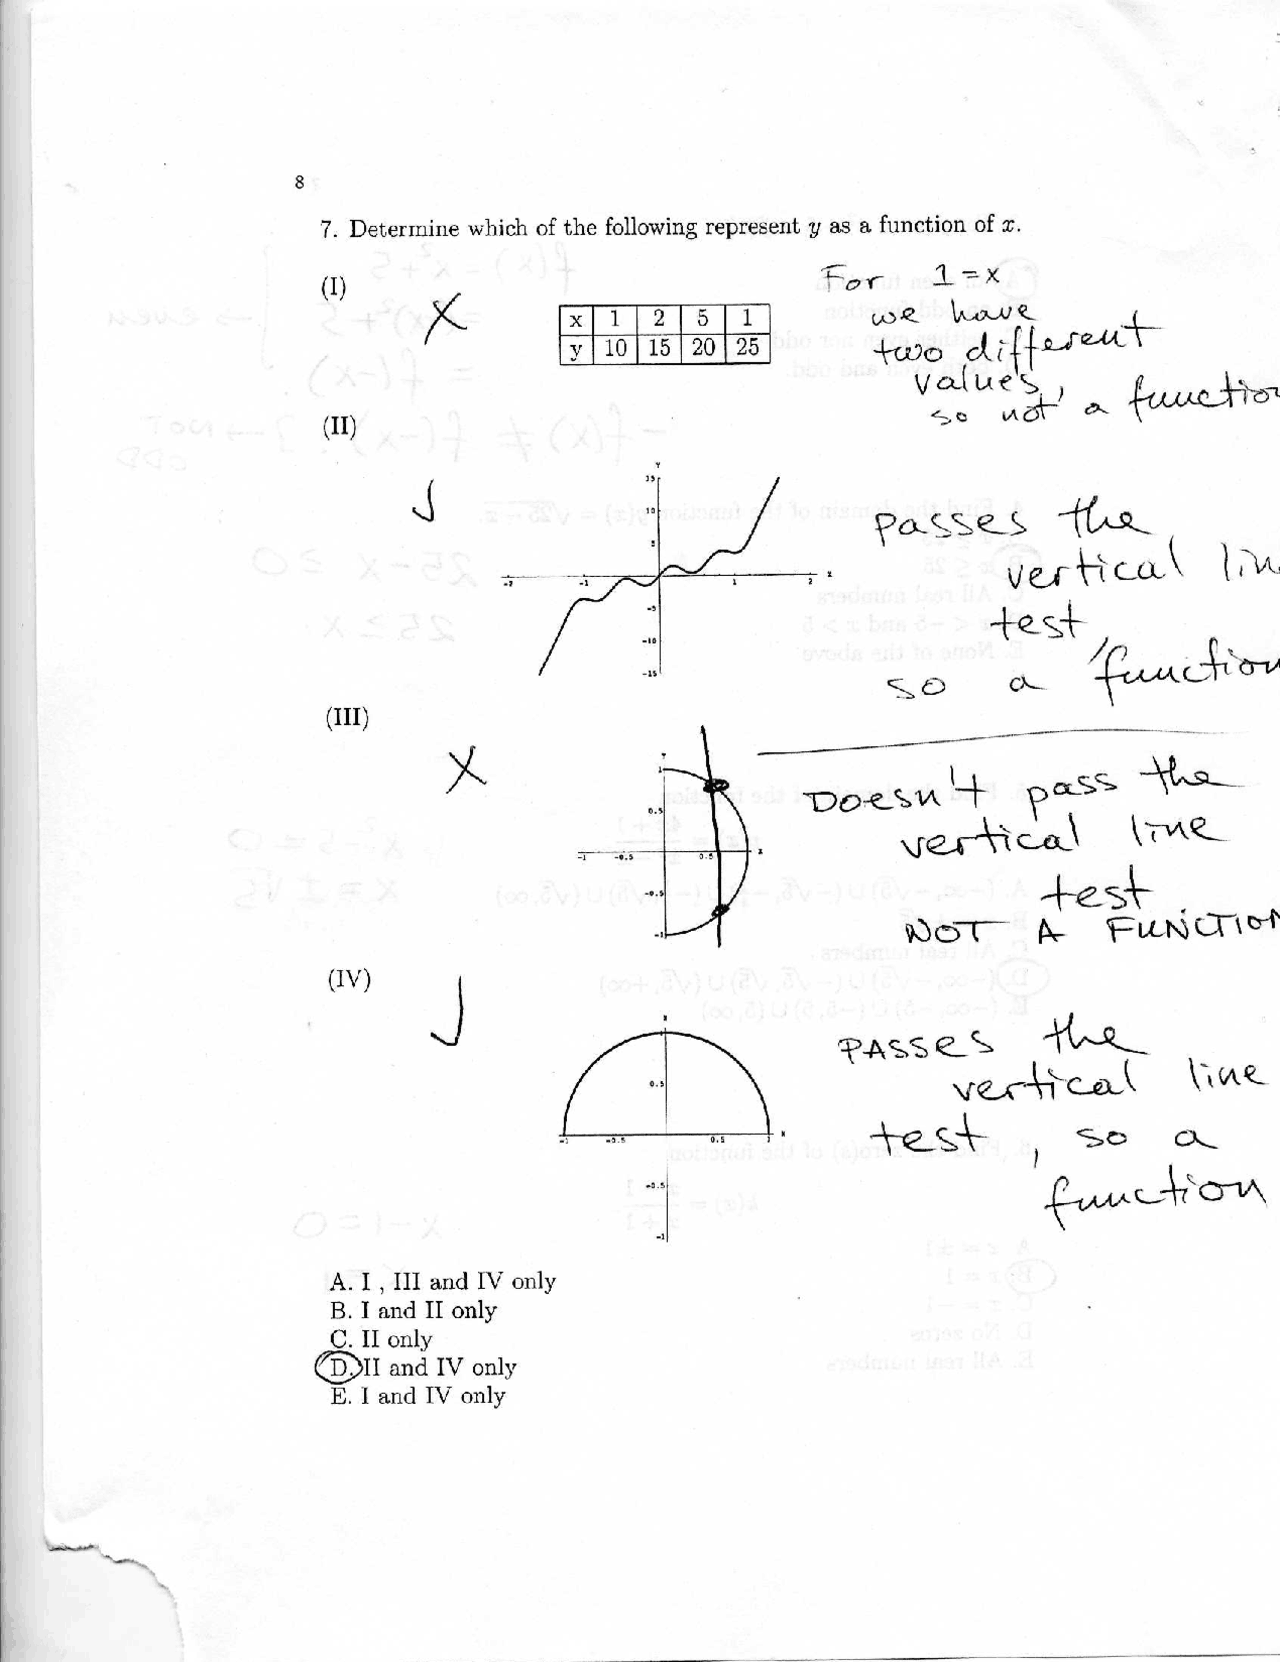 8
7. Determine which of the following represent y as a function of x.
(I)
X
x 1 2 5 1
y 10 15 20 25
For 1 = x
we have
two different
values,
so not a function
(II)
Y
15
10
5
-2 -1 1 2 x
-5
-10
-15
passes the
vertical line
test,
so a function
(III)
X
Y
1
0.5
-1 -0.5 0.5 x
-0.5
-1
Doesn't pass the
vertical line
test.
NOT A FUNCTION
(IV)
0.5
-1 -0.5 0.5 1 x
-0.5
-1
PASSES the
vertical line
test, so a
function
A. I , III and IV only
B. I and II only
C. II only
D. II and IV only
E. I and IV only